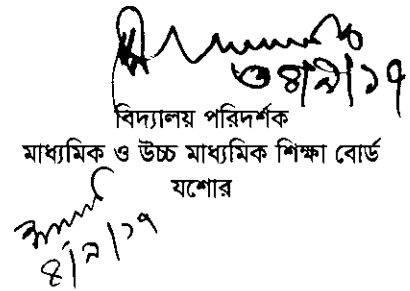 ০৪/৯/১৭
বিদ্যালয় পরিদর্শক
মাধ্যমিক ও উচ্চ মাধ্যমিক শিক্ষা বোর্ড
যশোর
৪/৯/১৭